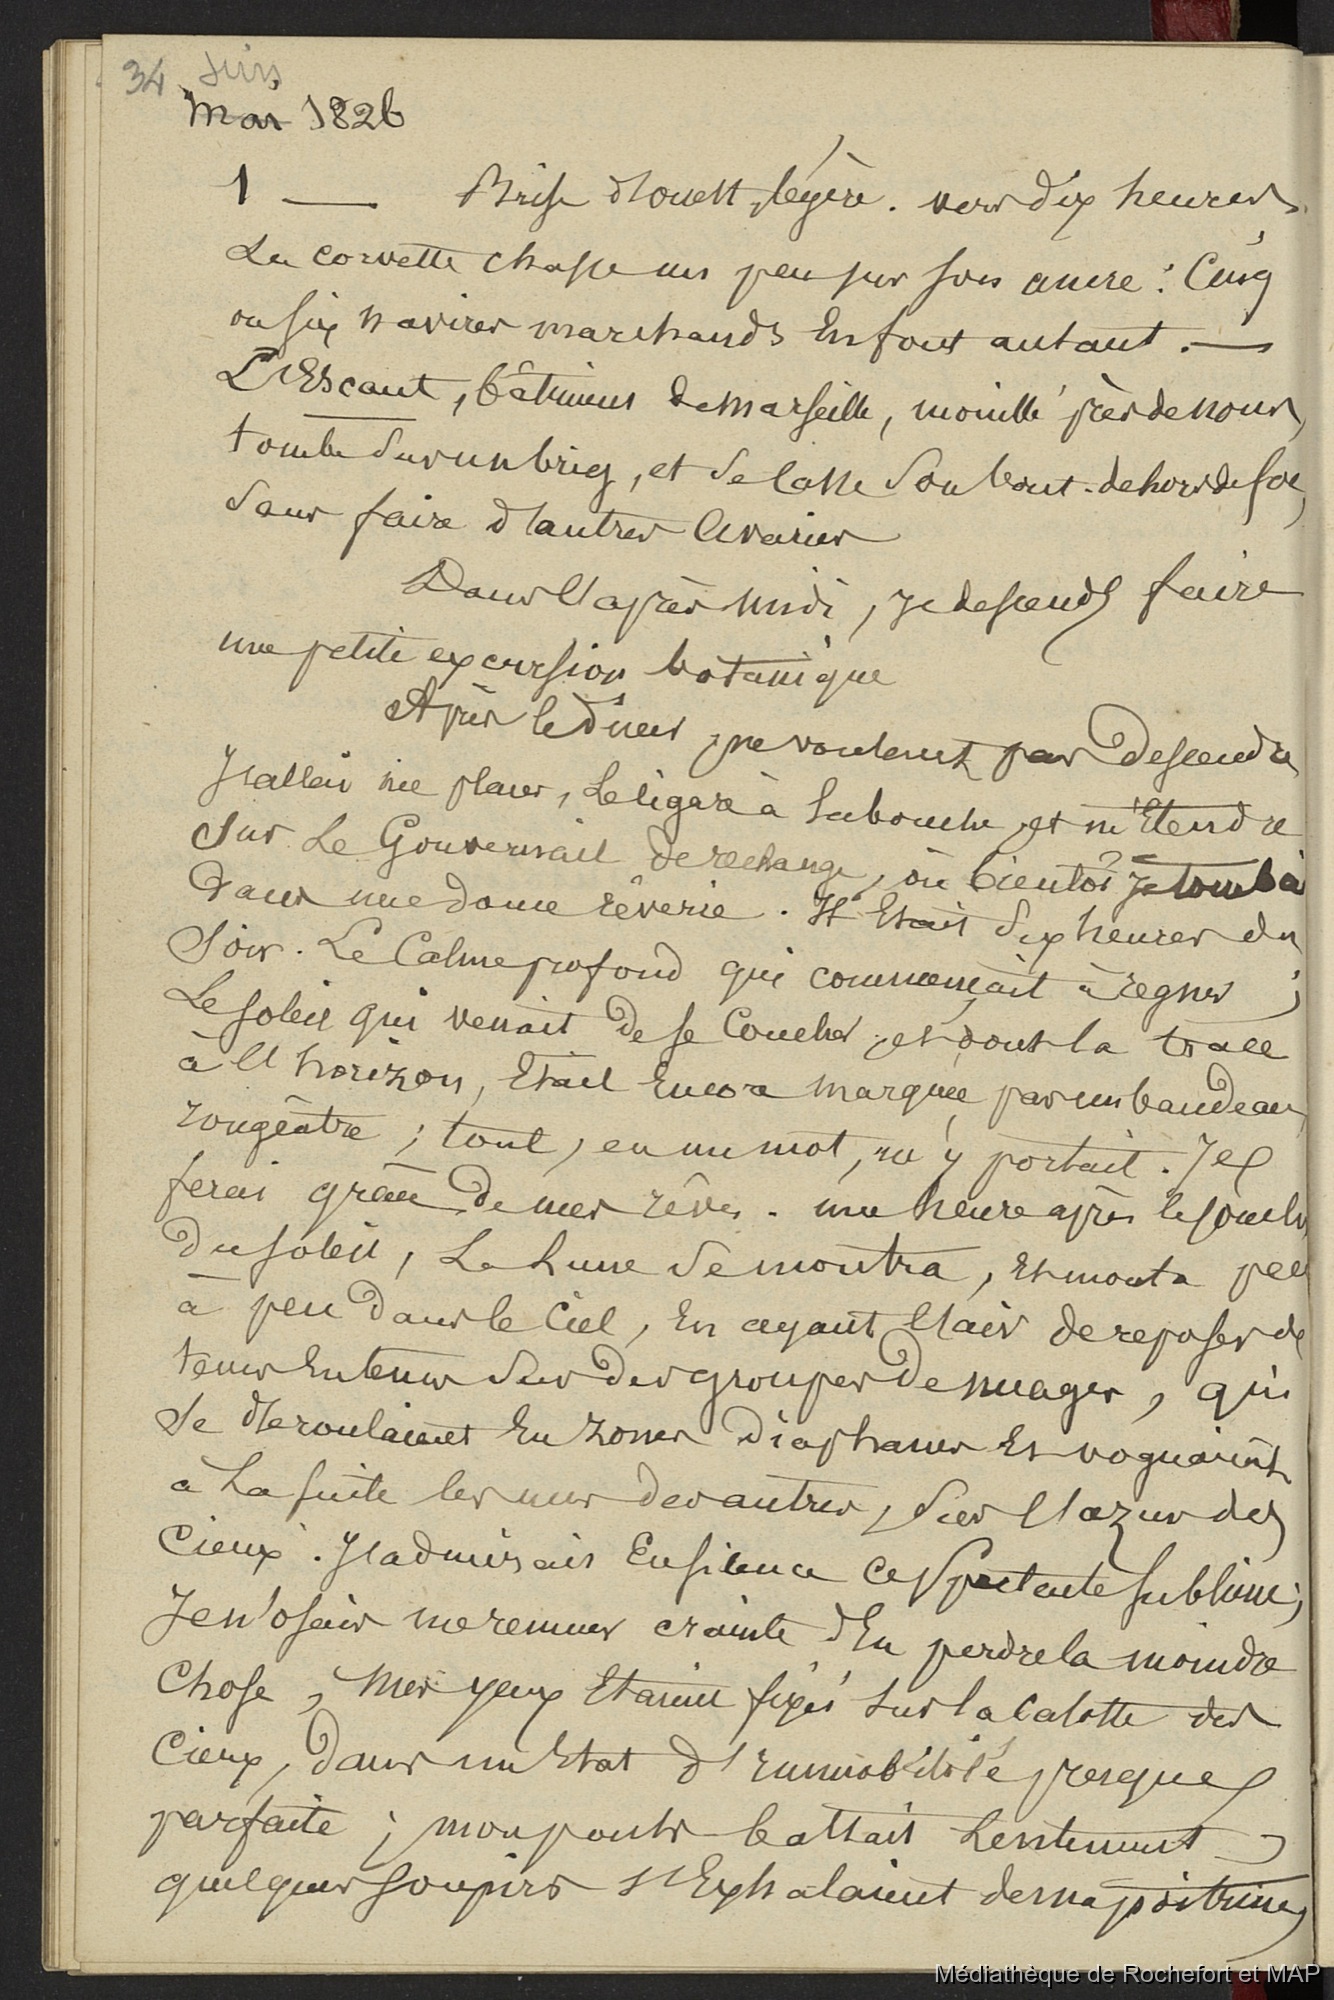 34 Juin
Mai 1826
1 — Brise d'ouest, légère. vers dix heures
La corvette chasse un peu sur son ancre : Cinq
ou six navires marchands En font autant. —
L'Escaut, bâtiment de Marseille, mouillé près de nous,
tombe sur un brig, et se casse son bout-dehors de foc,
sans faire d'autres avaries
Dans l'après midi, je descends faire
une petite excursion botanique
Après le dîner, ne voulant pas Descendre
J'allai me placer, Le cigare à la bouche, et m'Etendre
sur Le Gouvernail de rechange, où bientôt je tombai
Dans une douce rêverie. Il Etait six heures du
Soir. Le Calme profond qui commençait à regner ;
Le soleil qui venait de se Coucher, et dont la trace
à l'horizon, Etait Encore marquée par un bandeau
rougeâtre ; tout, en un mot, m'y portait. Je
ferai grâce De mes rêves. une heure après le coucher
Du soleil, La Lune se montra, Et monta peu
à peu Dans le Ciel, En ayant l'air de reposer de
tems En tems sur Des groupes De nuages, qui
se deroulaient En zones Diaphanes Et voguaient
à La suite les uns des autres, sur l'azur des
Cieux. J'admirais En silence Ce Spectacle sublime ;
Je n'osais me remuer crainte d'En perdre la moindre
Chose, Mes yeux Etaient fixés sur la calotte des
Cieux, Dans un Etat d'Immobilité presque
parfaite ; mon pouls battait Lentement,
quelques soupirs s'Exhalaient de ma poitrine,
Médiathèque de Rochefort et MAP